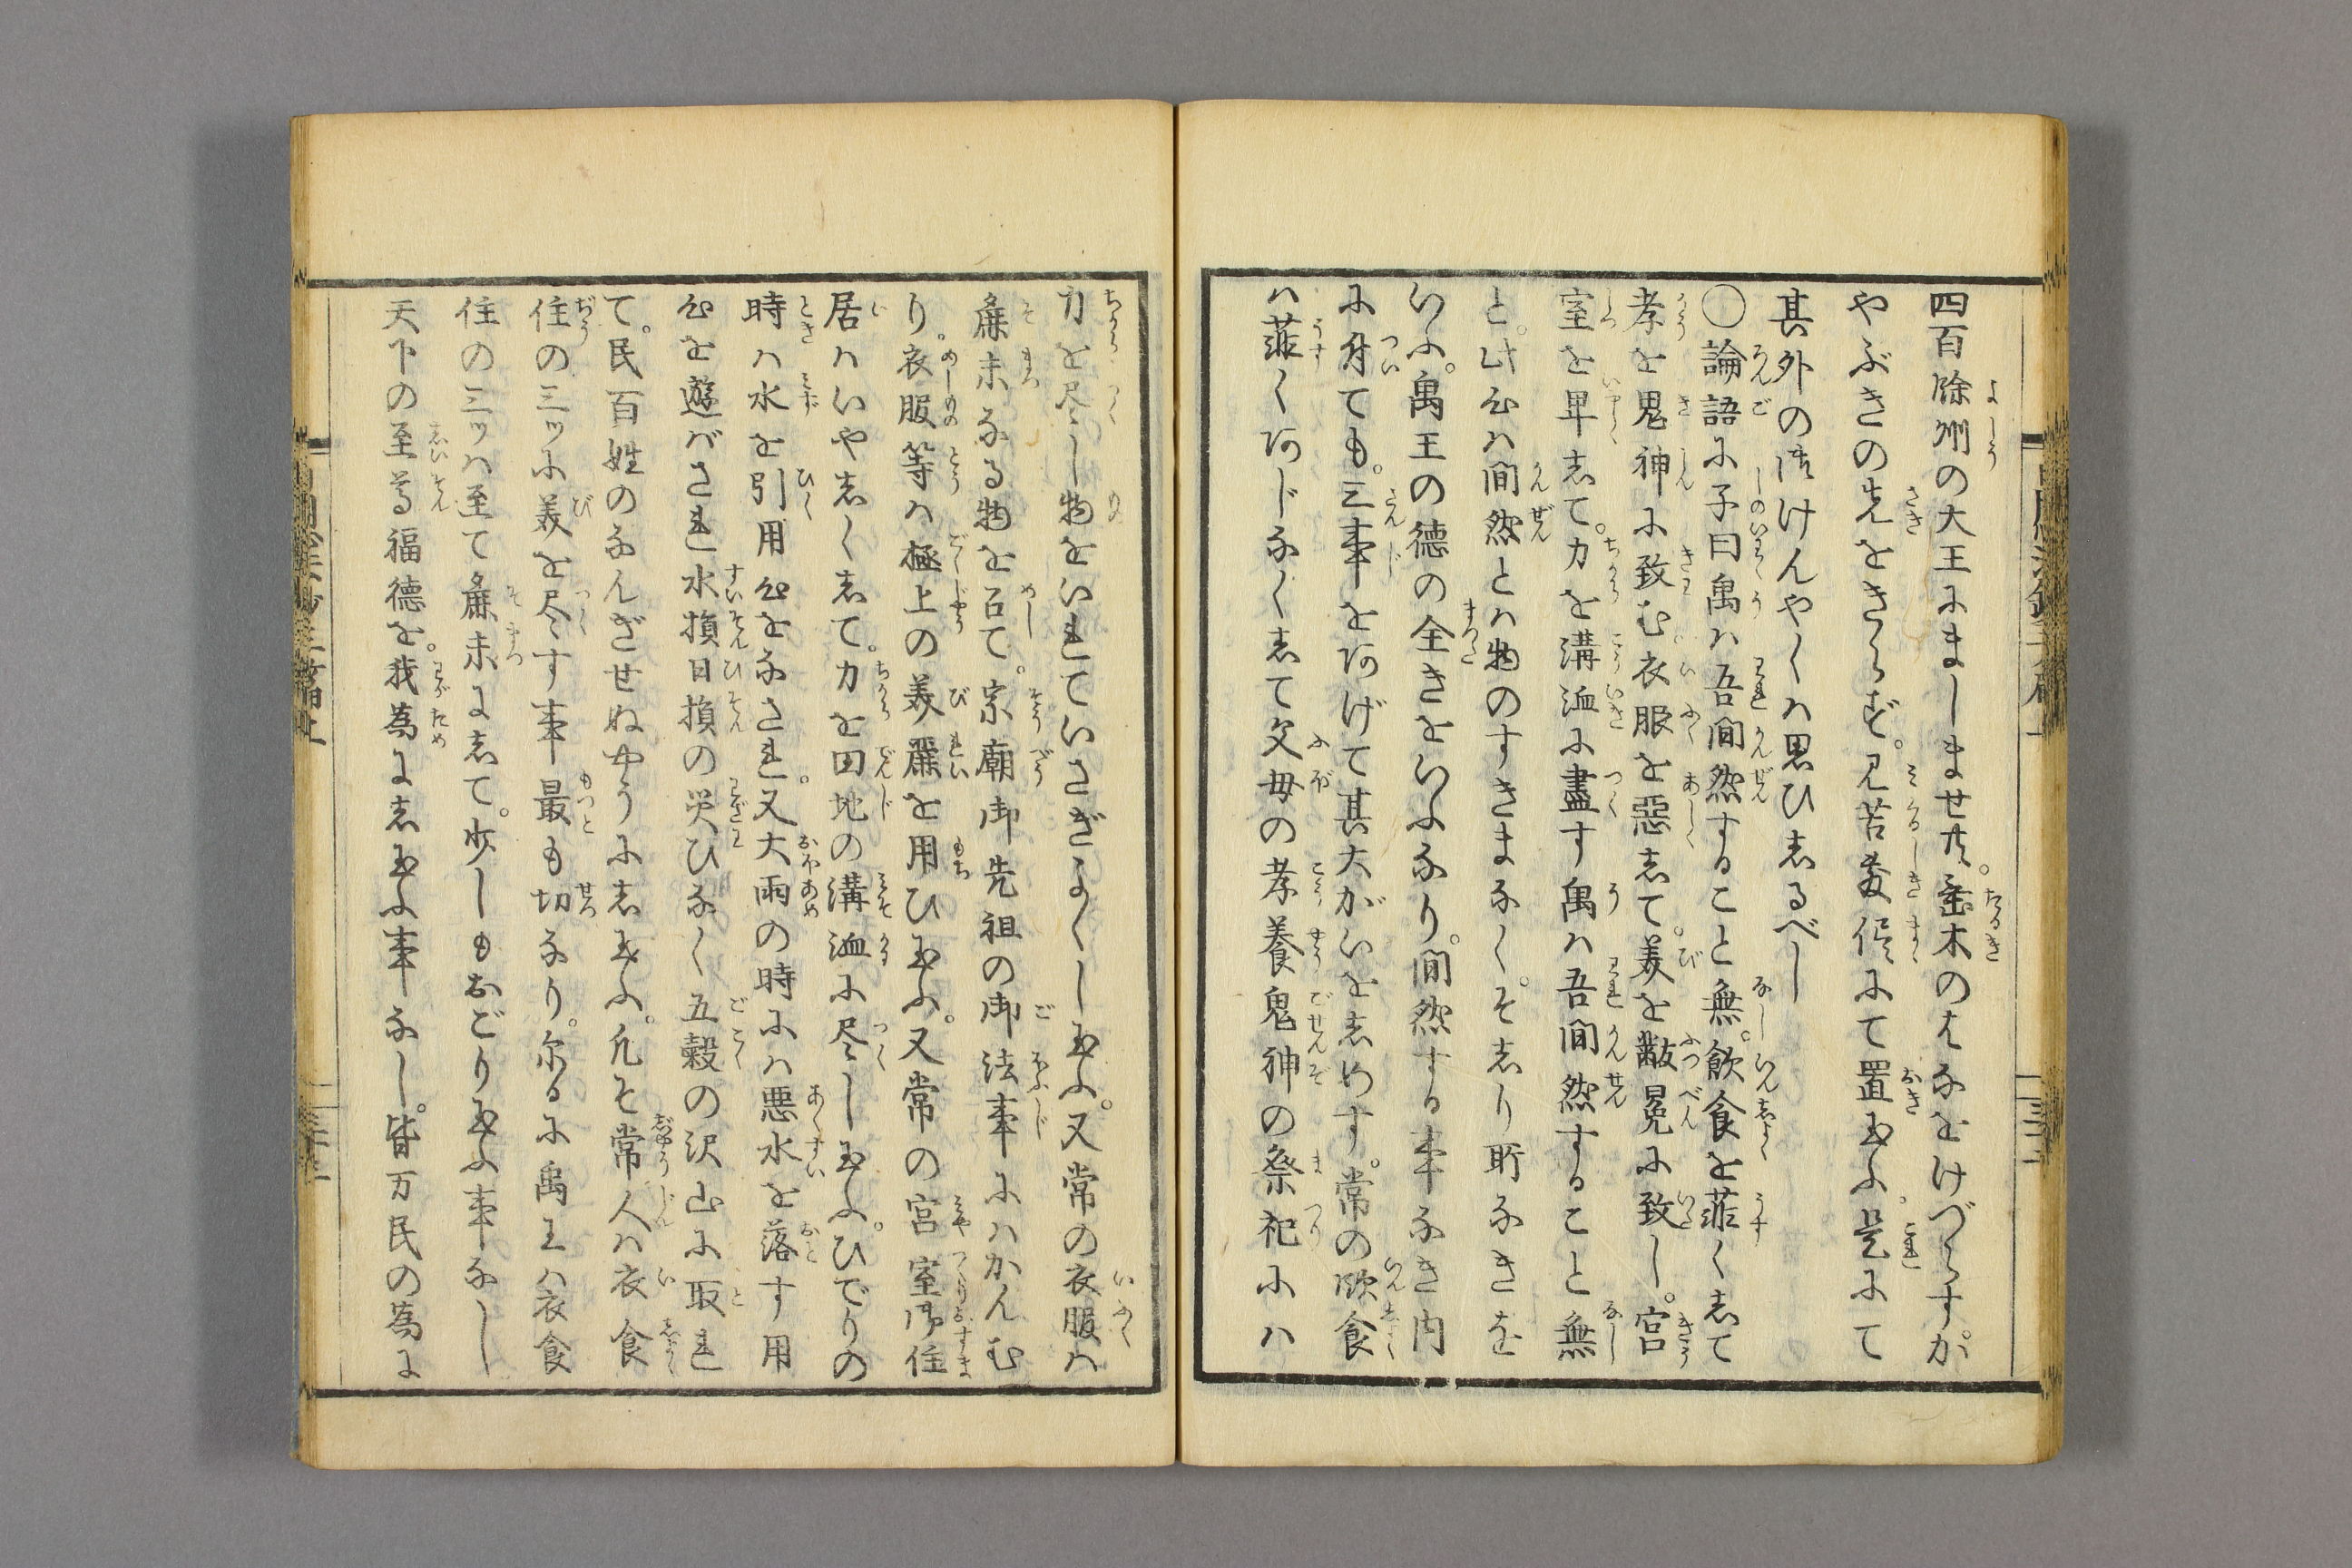 四百餘州の大王にましませ共。垂木のはなをけづらすか
やぶきの先をきらず。見苦敷侭にて置玉ふ。是にて
其外の御けんやくハ思ひしるべし
〇論語に子曰禹ハ吾間然すること無。飲食を菲くして
孝を鬼神に致む。衣服を惡して。美を黻冕に致し。宮
室を卑して。力を溝洫に盡す禹ハ吾間然すること無
と。此心ハ間然とハ物のすきまなく。そしり所なきを
いふ。禹王の徳の全きをいふなり。間然する事なき内
に付ても。三事をあげて其大がいをしめす。常の飲食
ハ菲くあじなくして父母の孝養鬼神の祭祀にハ
力を尽し物をいれていさぎよくし玉ふ。又常の衣服ハ
麁末なる物を召て。宗廟御先祖の御法事にハかんむ
り。衣服等ハ極上の美麗を用ひ玉ふ。又常の宮室御住
居ハいやしくして。力を田地の溝洫に尽し玉ふ。ひでりの
時ハ水を引用心をなされ。又大雨の時にハ悪水を落す用
心を遊バされ水損日損の災ひなく五穀の沢山に取れ
て。民百姓のなんぎせぬやうにし玉ふ。凡そ常人ハ衣食
住の三ッに美を尽す事最も切なり。尓るに禹王ハ衣食
住の三ッハ至て麁末にして。少しもおごり玉ふ事なし
天下の至尊福徳を。我為にし玉ふ事なし。皆万民の為に